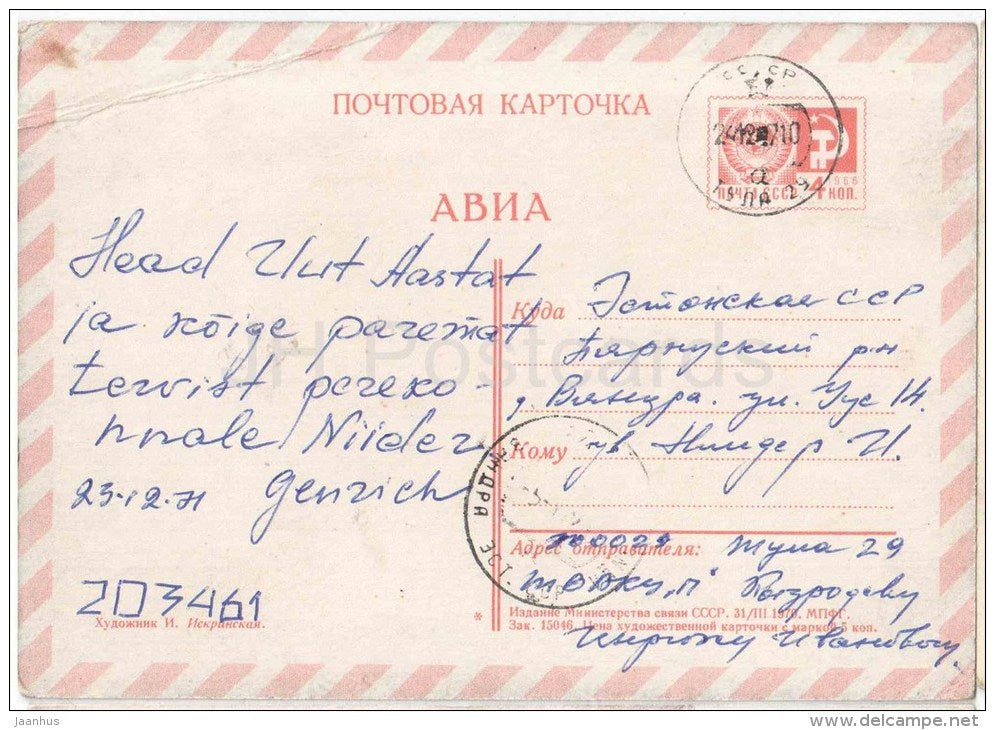 ПОЧТОВАЯ КАРТОЧКА
АВИА
СССР
24 12 71 0
ТУЛА 29
ПОЧТА СССР
1966
4 КОП.
Head Uut Aastat
ja kõige paremat
tervist pereko-
nnale Niider
23.12.71 Genrich
Куда Эстонская ССР
Пярнуский р-н
д. Вяндра. ул. Уус 14.
Кому гр Ниидер И.
Адрес отправителя: Тула 29
Ивановичу
2D3461
Художник И. Искринская.
* Издание Министерства связи СССР. 31/III 1970. МПФГ.
Зак. 15046. Цена художественной карточки с маркой 5 коп.
JH Postcards
jaanhus
www.delcampe.net